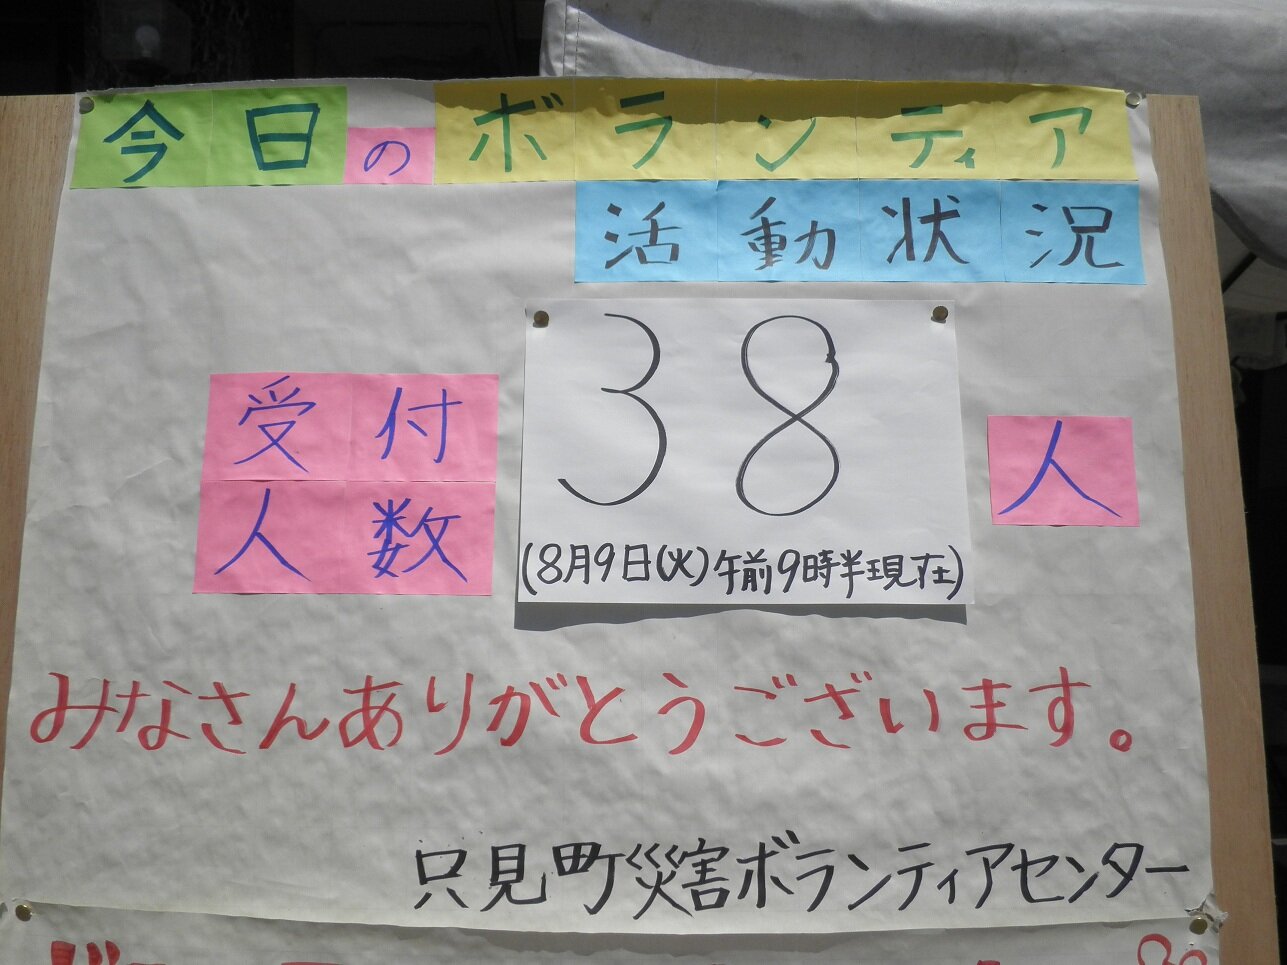 今日のボランティア
活動状況
受付
人数
38
人
(8月9日(火)午前9時半現在)
みなさんありがとうございます。
只見町災害ボランティアセンター